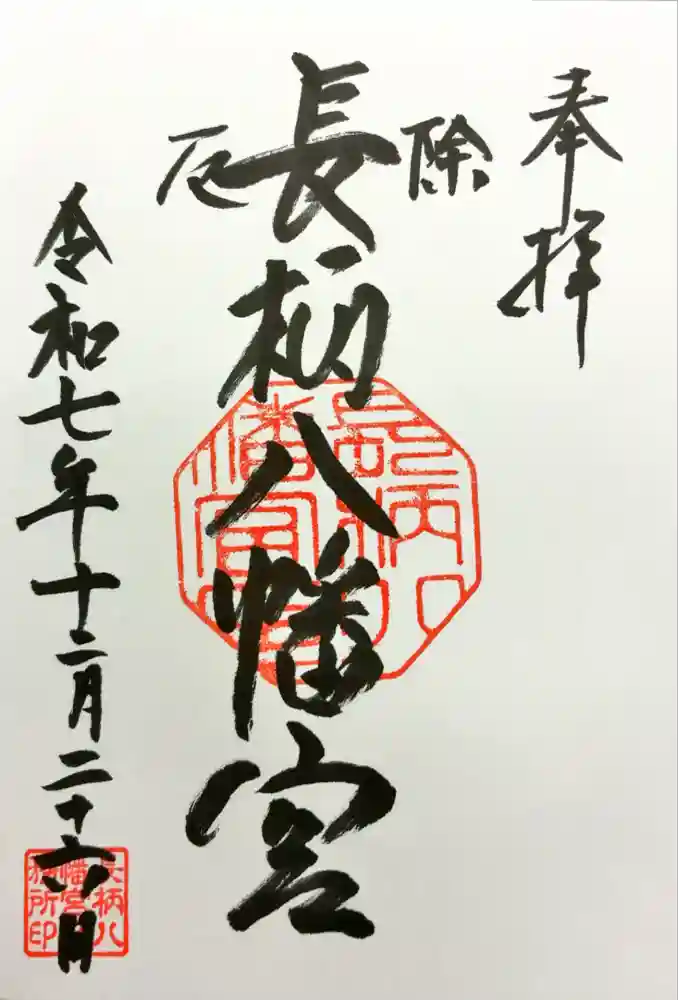 奉拝
除厄
長柄八幡宮
令和七年十二月二十六日
長柄八
幡宮社
務所印